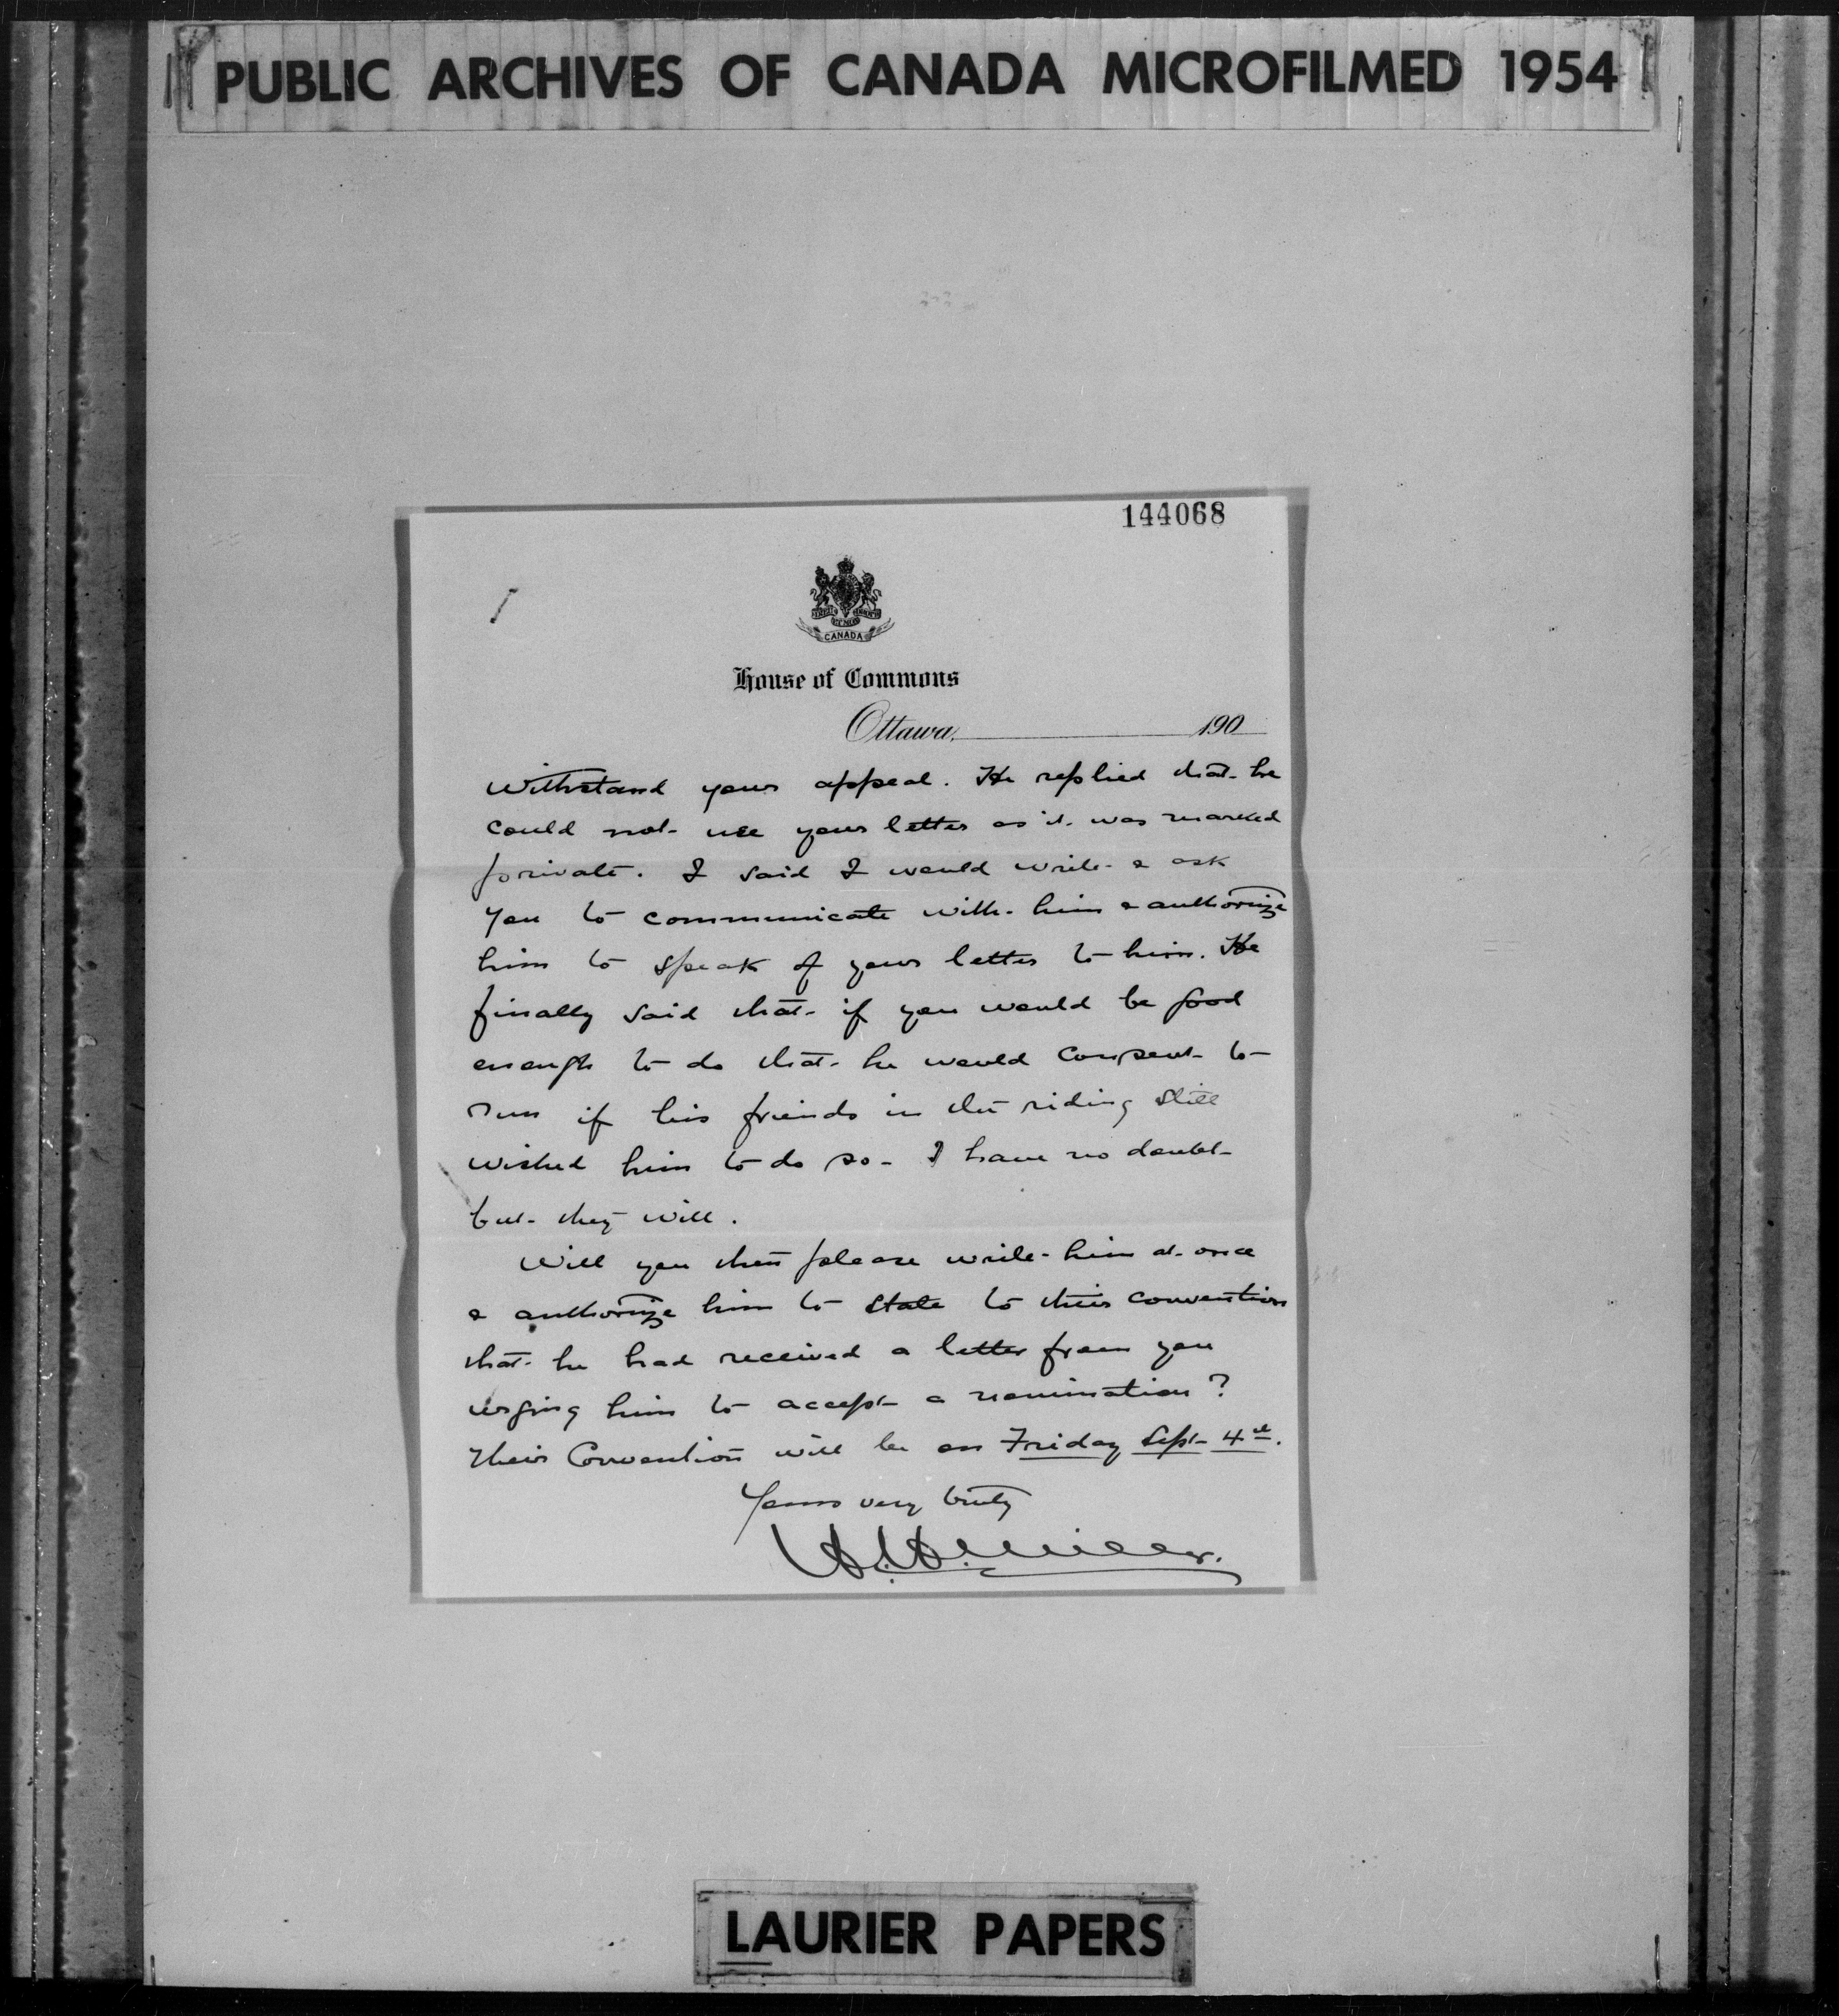 PUBLIC ARCHIVES OF CANADA MICROFILMED 1954
144068
CANADA
House of Commons
Ottawa, 190
withstand your appeal. He replied that he
could not use your letter as it was marked
private. I said I would write & ask
you to communicate with him & authorize
him to speak of your letter to him. He
finally said that if you would be good
enough to do that he would consent to
run if his friends in the riding still
wished him to do so - I have no doubt
but they will.
Will you then please write him at once
& authorize him to state to their convention
that he had received a letter from you
urging him to accept a nomination?
Their Convention will be on Friday Sept 4th.
Yours very truly
H. H. Miller.
LAURIER PAPERS